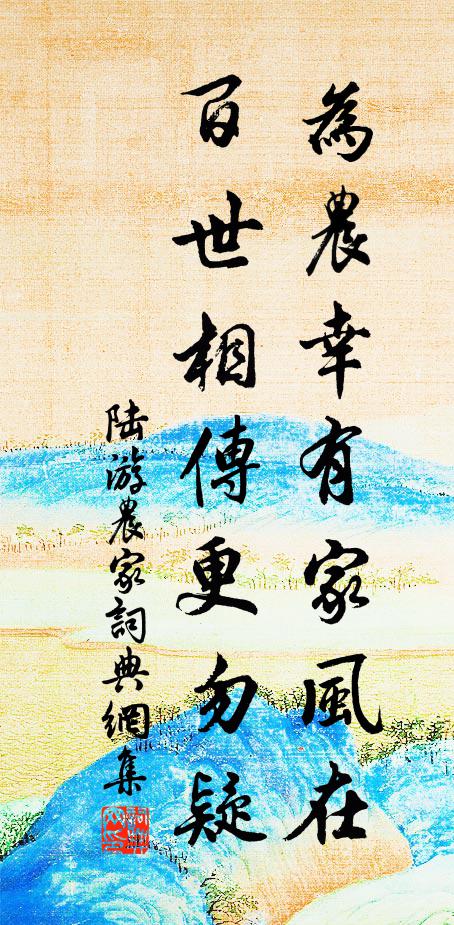 為農幸有家風在
百世相傳更勿疑
陆游農家詞典網集